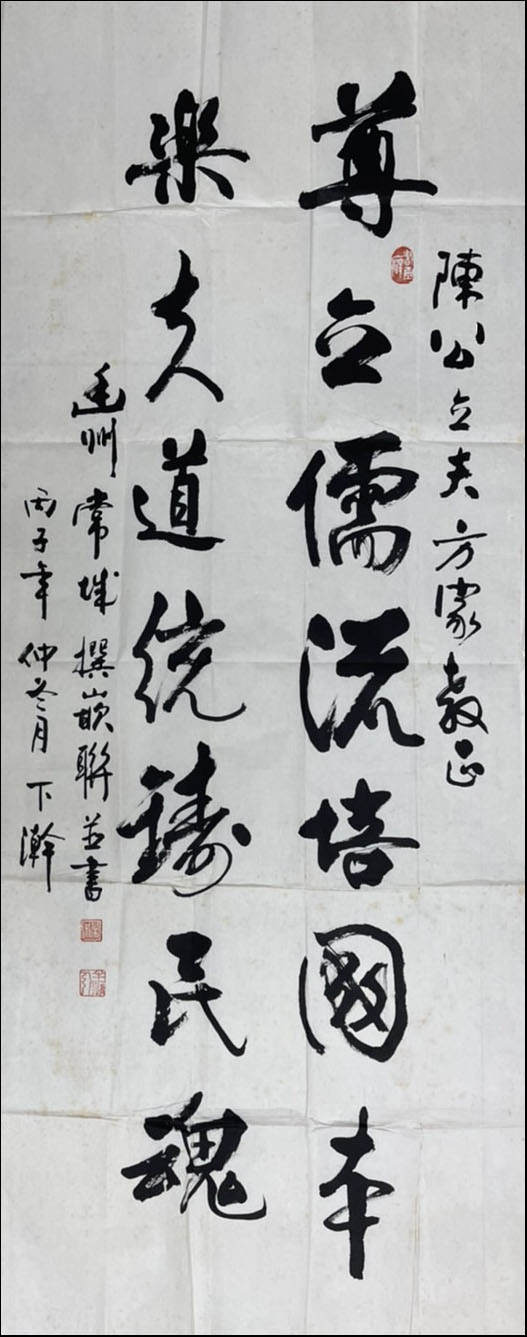 陳公立夫方家教正
尊立儒流培國本
樂夫道統鑄民魂
常城撰嵌聯並書
丙子年仲冬月下澣